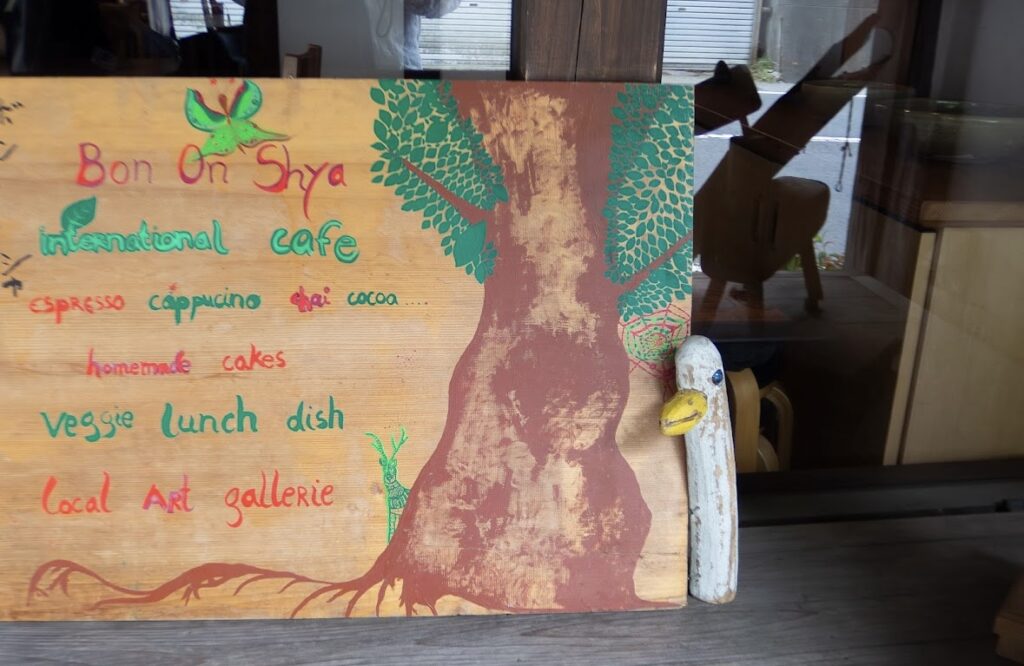 Bon On Shya
international cafe
espresso cappucino chai cocoa ....
homemade cakes
veggie lunch dish
local Art gallerie